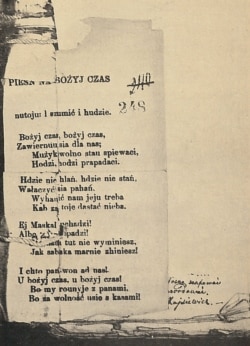 PIEŚŃ NA BOŻYJ CZAS
248
nutoju: I szumić i hudzie.
Bożyj czas, bożyj czas,
Zawiernuusia dla nas;
Mużyk wolno stau śpiewaci,
Hodzi, hodzi prapadaci.
Hdzie nie hlań, hdzie nie stań,
Wałaczyć sia pahań.
Wyhanić nam jeju treba
Kab za toje dastać nieba.
Ej Maskal uchadzi!
Albo padzi!
tut nie wyminiesz,
Jak sabaka marnie zhiniesz!
I chto pan won ad nas!
U bożyj czas, u bożyj czas!
Bo my rounyje z panami,
Bo za wolność usie z kasami!